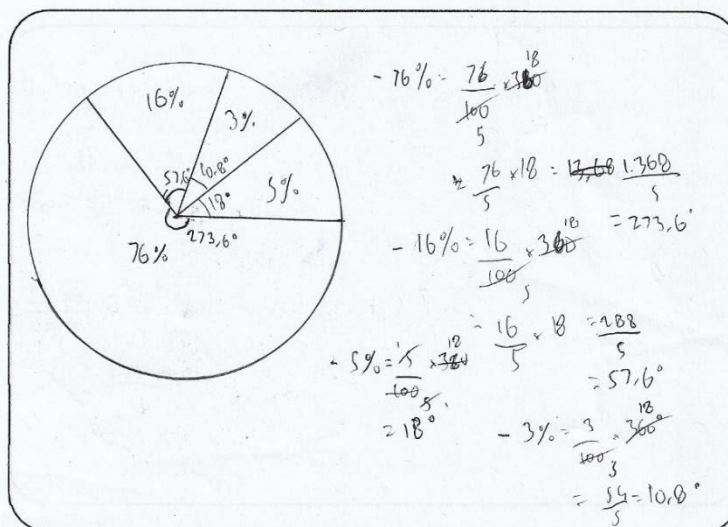 16%
3%
5%
57,6°
10,8°
18°
273,6°
76%
- 76% = 76/100 5 × 360 18
= 76/5 × 18 = 13,68 1.368/5
= 273,6°
- 16% = 16/100 5 × 360 18
= 16/5 × 18 = 288/5
= 57,6°
- 5% = 5/100 5 × 360 18
= 18°
- 3% = 3/100 3 × 360° 18
= 54/5 = 10,8°